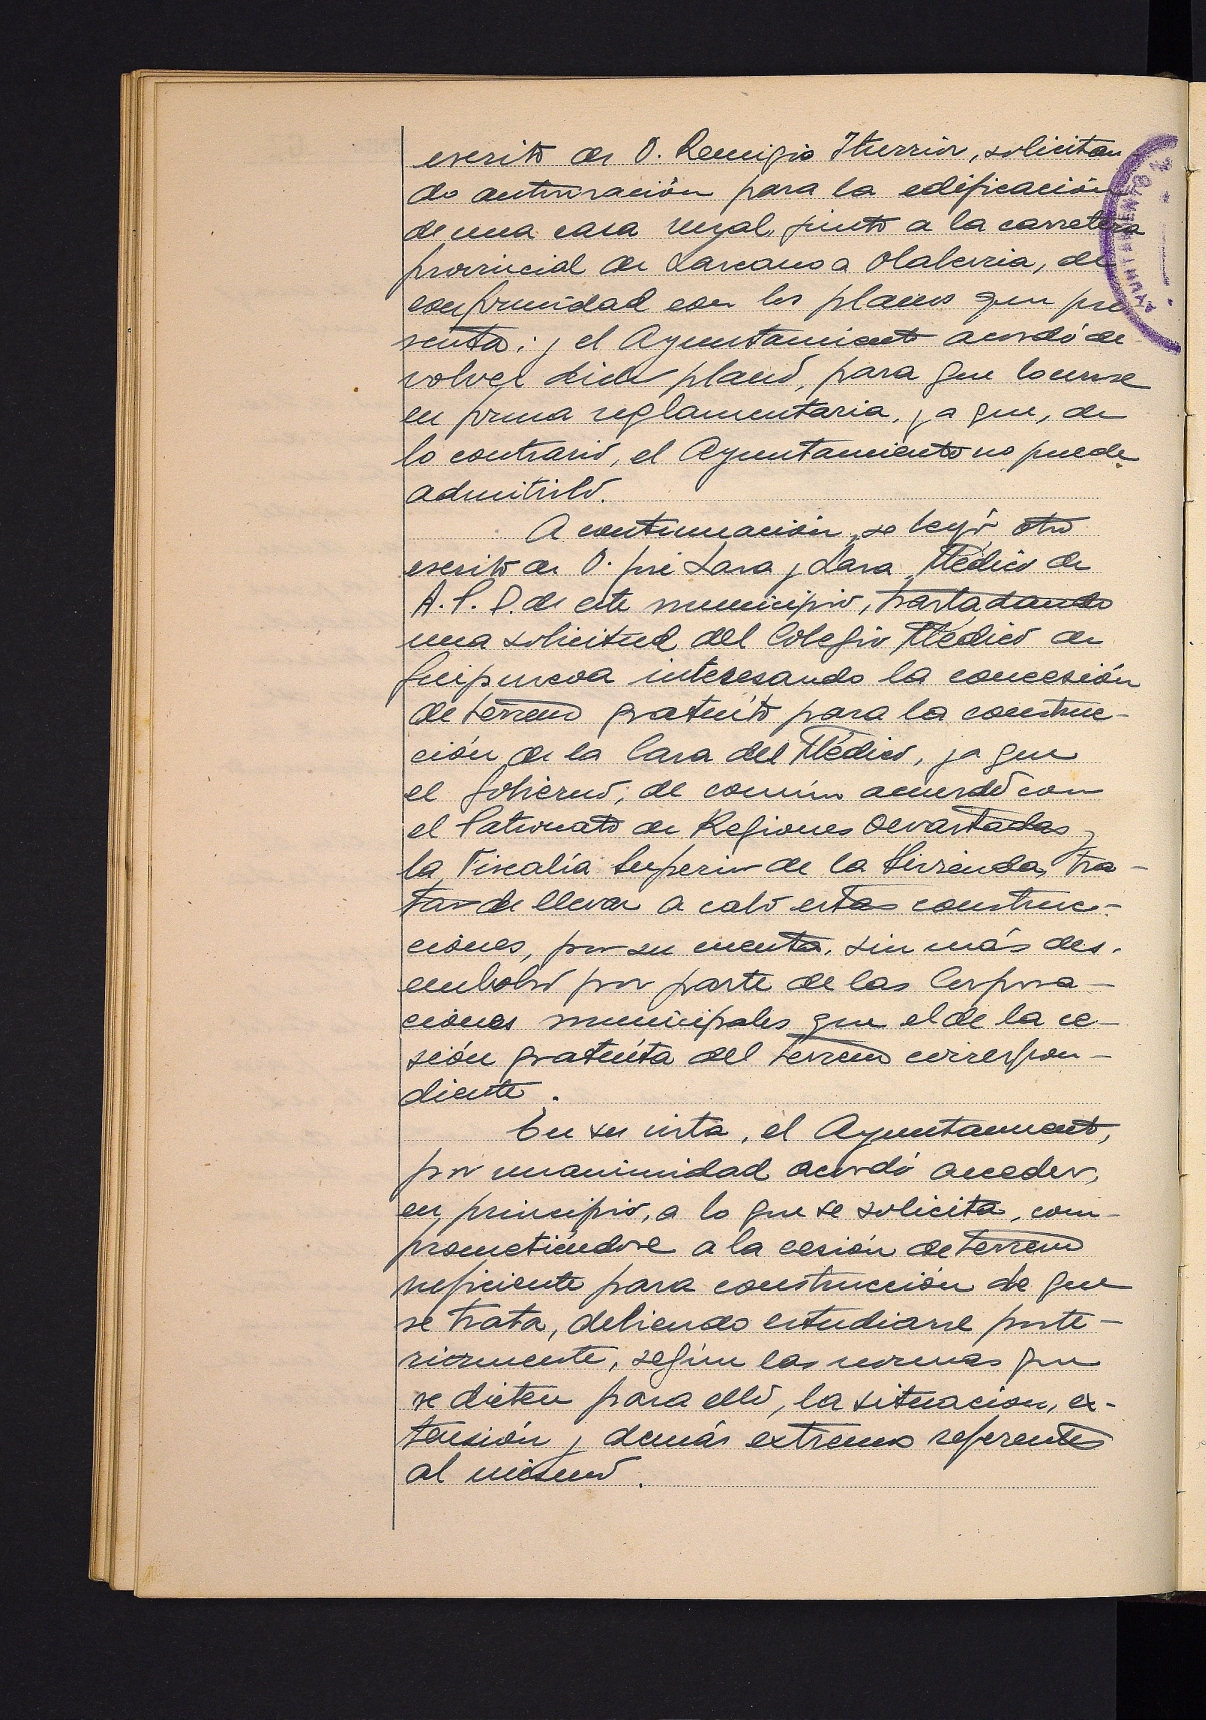 escrito de D. Remigio Iturrioz, solicitan
do autorización para la edificación
de una casa rural junto a la carretera
provincial de Lazcano a Olaberria, de
conformidad con los planos que pre
senta; y el Ayuntamiento acordó de
volver dicho plano, para que lo curse
en forma reglamentaria, ya que, de
lo contrario, el Ayuntamiento no puede
admitirlo.
A continuación, se leyó otro
escrito de D. José Lasa y Lasa, Médico de
A. P. D. de este municipio, trasladando
una solicitud del Colegio Médico de
Guipuzcoa interesando la concesión
de terreno gratuíto para la construc-
ción de la Casa del Médico, ya que
el Gobierno, de común acuerdo con
el Patronato de Regiones Devastadas y
la Fiscalía Superior de la Vivienda, tra-
tan de llevar a cabo estas construc-
ciones, por su cuenta, sin más des-
embolso por parte de las Corpora-
ciones municipales que el de la ce-
sión gratuíta del terreno correspon-
diente.
En su vista, el Ayuntamiento,
por unanimidad acordó acceder,
en principio, a lo que se solicita, com-
prometiéndose a la cesión de terreno
suficiente para construcción de que
se trata, debiendo estudiarse poste-
riormente, según las normas que
se dicten para ello, la situación, ex-
tensión y demás extremos referentes
al mismo.
AYUNTAMIENTO